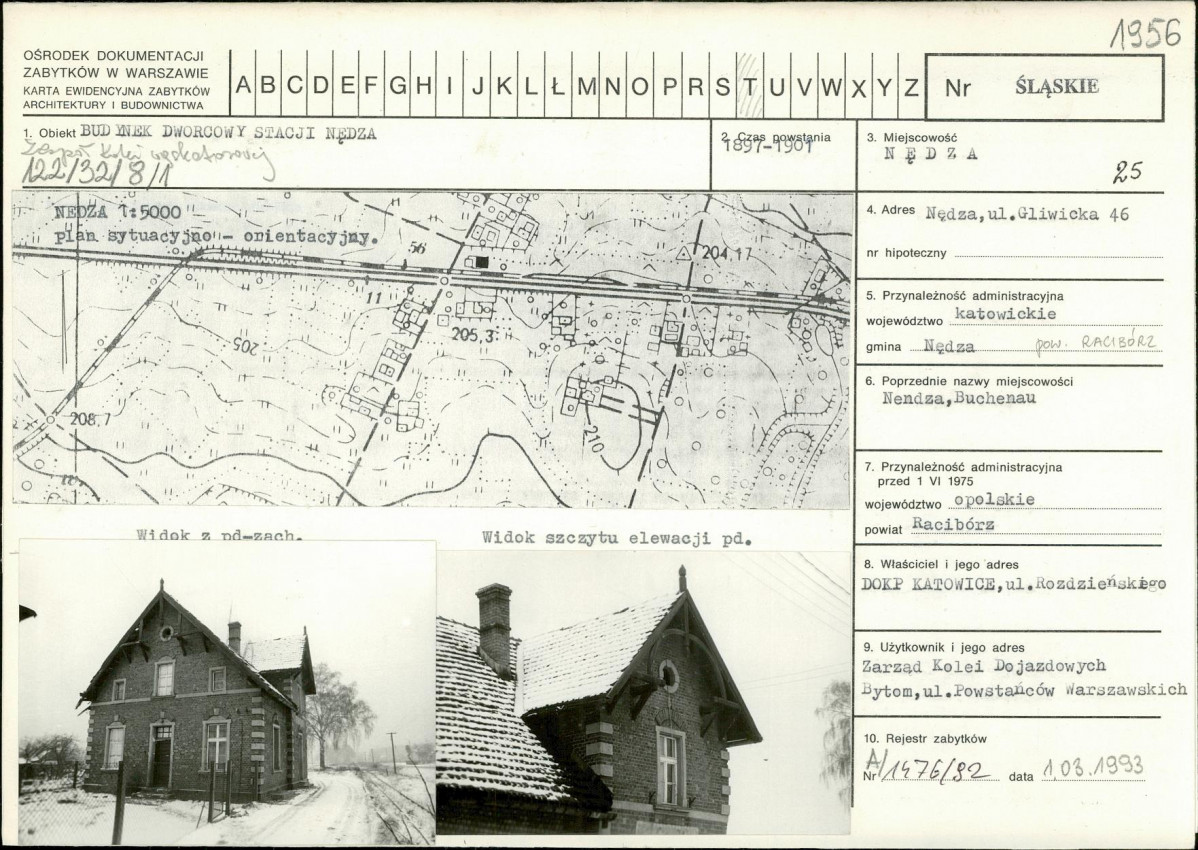 1956
OŚRODEK DOKUMENTACJI
ZABYTKÓW W WARSZAWIE
KARTA EWIDENCYJNA ZABYTKÓW
ARCHITEKTURY I BUDOWNICTWA
A B C D E F G H I J K L Ł M N O P R S T U V W X Y Z
Nr ŚLĄSKIE
1. Obiekt BUDYNEK DWORCOWY STACJI NĘDZA
Zespół kolei wąskotorowej
122/32/8/1
2. Czas powstania
1897-1901
3. Miejscowość
N Ę D Z A
25
NĘDZA 1:5000
plan sytuacyjno - orientacyjny.
56
204.17
11
205,3
205
208,7
210
4. Adres Nędza,ul.Gliwicka 46
nr hipoteczny
5. Przynależność administracyjna
województwo katowickie
gmina Nędza pow. RACIBÓRZ
6. Poprzednie nazwy miejscowości
Nendza,Buchenau
7. Przynależność administracyjna
przed 1 VI 1975
województwo opolskie
powiat Racibórz
Widok z pd-zach.
Widok szczytu elewacji pd.
8. Właściciel i jego adres
DOKP KATOWICE,ul.Rozdzieńskiego
9. Użytkownik i jego adres
Zarząd Kolei Dojazdowych
Bytom,ul.Powstańców Warszawskich
10. Rejestr zabytków
Nr A/1476/92 data 1.03.1993